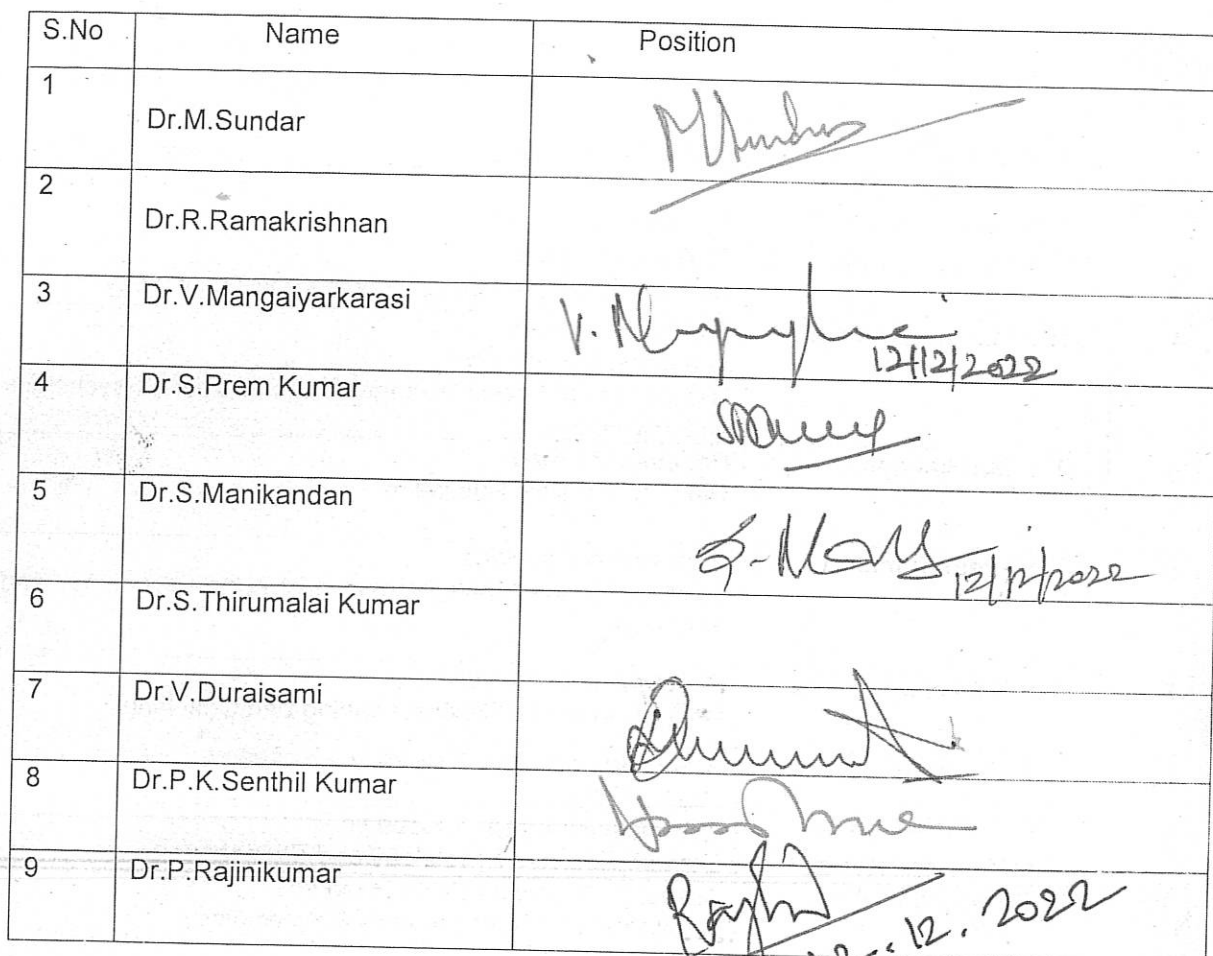 S.No Name Position
1
Dr.M.Sundar
2
Dr.R.Ramakrishnan
3 Dr.V.Mangaiyarkarasi
12/12/2022
4 Dr.S.Prem Kumar
5 Dr.S.Manikandan
12/12/2022
6 Dr.S.Thirumalai Kumar
7 Dr.V.Duraisami
8 Dr.P.K.Senthil Kumar
9 Dr.P.Rajinikumar
12. 2022